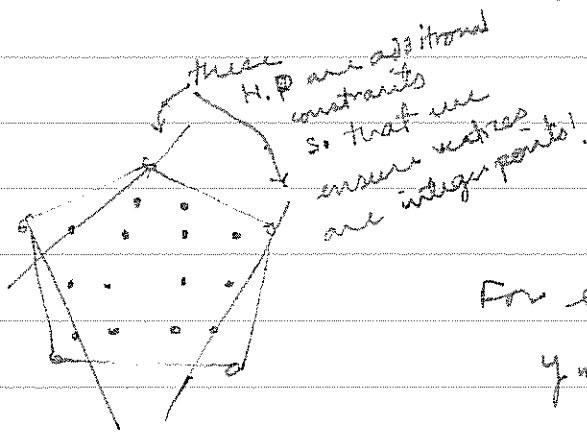 these
H.P are additional
constraints
so that we
ensure vertices
are integer points!
For
y